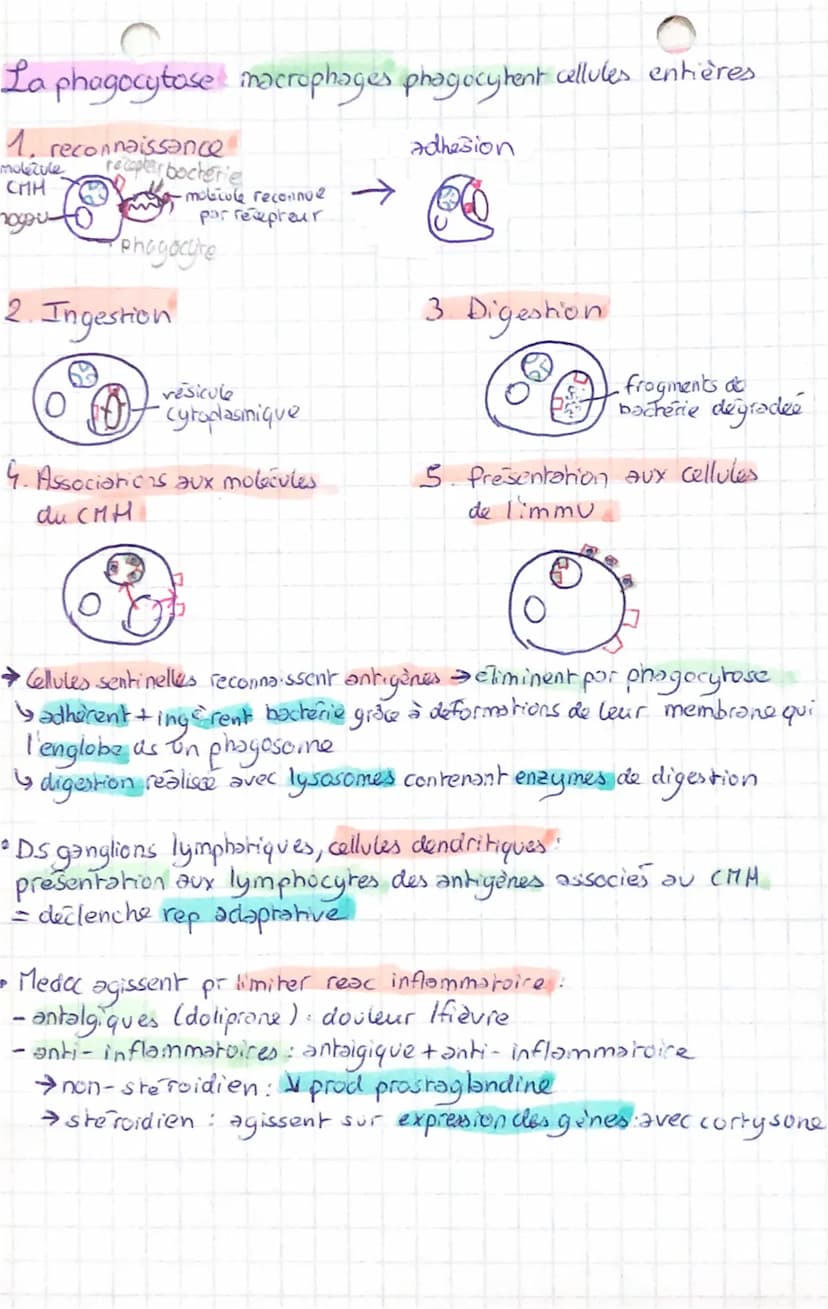 La phagocytose macrophages phagocytent cellules entières
1. reconnaissance
adhesion
molécule
CMH
récepteur
bactérie
molécule reconnue
par récepteur
noyau
phagocyte
2. Ingestion
3. Digestion
vésicule
cytoplasmique
fragments de
bactérie dégradée
4. Associations aux molécules
du CMH
5. Présentation aux cellules
de l'immu
→ Cellules sentinelles reconnaissent antigènes → éliminent par phagocytose
↳ adhèrent + ingèrent bactérie grâce à déformations de leur membrane qui
l'englobe ds un phagosome
↳ digestion réalisée avec lysosomes contenant enzymes de digestion
• Ds ganglions lymphatiques, cellules dendritiques :
présentation aux lymphocytes des antigènes associés au CMH
= déclenche rep adaptative
• Medoc agissent pr limiter reac inflammatoire :
- antalgiques (doliprane) : douleur / fièvre
- anti-inflammatoires : antalgique + anti-inflammatoire
→ non-stéroïdien : ↓ prod prostaglandine
→ stéroïdien : agissent sur expression des gènes avec cortysone